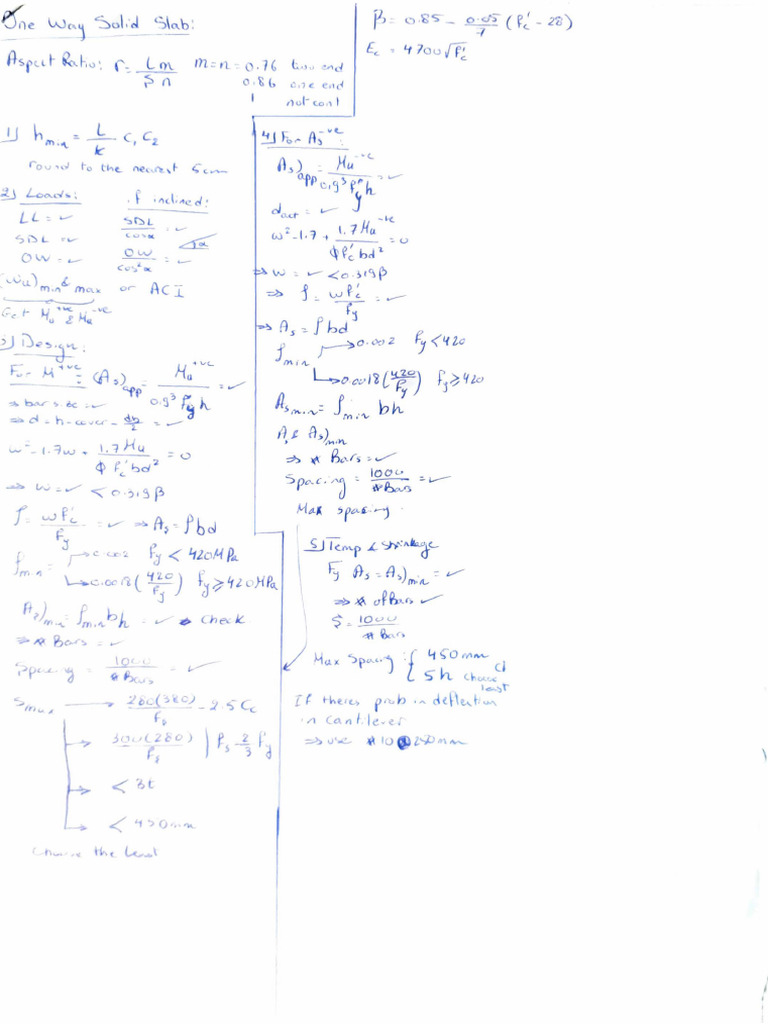 One Way Solid Slab:
Aspect Ratio: r = Lm / Sn   m = n = 0.76 two end
0.86 one end
1 not cont
1) hmin = L/k C1 C2
round to the nearest 5cm
2) Loads:   if inclined:
LL = ✓   SDL/cosα = ✓
SDL = ✓
OW = ✓   OW/cos²α = ✓
(Wu)min & max or ACI
Get Mu+ve & Mu-ve
3) Design:
For M+ve: (As)app = Mu+ve / 0.9³ fy h = ✓
⇒ d = h - cover - db/2 = ✓
w² - 1.7w + 1.7Mu / ϕ fc' bd² = 0
⇒ w = ✓ < 0.319β
ρ = w fc' / fy = ✓ ⇒ As = ρbd
ρmin → 0.002 fy < 420MPa
→ 0.0018 (420/fy) fy ≥ 420MPa
As)min = ρmin bh = ✓ Check
⇒ # Bars = ✓
Spacing = 1000 / # Bars = ✓
Smax → 280(380)/fs - 2.5Cc
→ 300(280)/fs | fs = 2/3 fy
→ < 3t
→ < 450mm
Choose the least
β = 0.85 - 0.05/7 (fc' - 28)
Ec = 4700√fc'
4) For As-ve:
As)app = Mu-ve / 0.9³ fy h = ✓
dact = ✓
w² - 1.7 + 1.7Mu-ve / ϕ fc' bd² = 0
⇒ w = ✓ < 0.319β
⇒ ρ = w fc' / fy = ✓
⇒ As = ρbd
ρmin → 0.002 fy < 420
→ 0.0018 (420/fy) fy ≥ 420
Asmin = ρmin bh
As & As)min
⇒ # Bars = ✓
Spacing = 1000 / # Bars = ✓
Max spacing
5) Temp & Shrinkage
As = As)min = ✓
⇒ # of Bars ✓
S = 1000 / # Bars
Max Spacing: { 450mm
5h choose least
If theres prob in deflection
in cantilever
⇒ use #10 @ 250mm